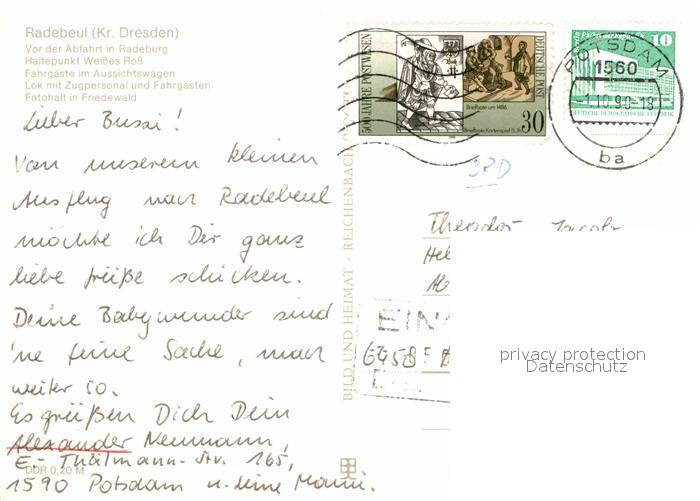 Radebeul (Kr. Dresden)
Vor der Abfahrt in Radeburg
Haltepunkt Weißes Roß
Fahrgäste im Aussichtswagen
Lok mit Zugpersonal und Fahrgästen
Fotohalt in Friedewald
Lieber Bussi!
Von unserem kleinen
Ausflug nach Radebeul
möchte ich Dir ganz
liebe Grüße schicken.
Deine Babywunder sind
'ne feine Sache, mach
weiter so.
Es grüßen Dich Dein
Alexander Neumann,
E-Thälmann-Str. 165,
1590 Potsdam u. deine Mami.
DDR 0,20 M
BILD UND HEIMAT · REICHENBACH
500 JAHRE POSTWESEN
DEUTSCHE POST
Briefbote um 1486
Briefbote, Kartenspiel
30
10
DEUTSCHE DEMOKRATISCHE REPUBLIK
POTSDAM
1560
-1.10.90-18
ba
Theodor Jacob
EIN
privacy protection
Datenschutz